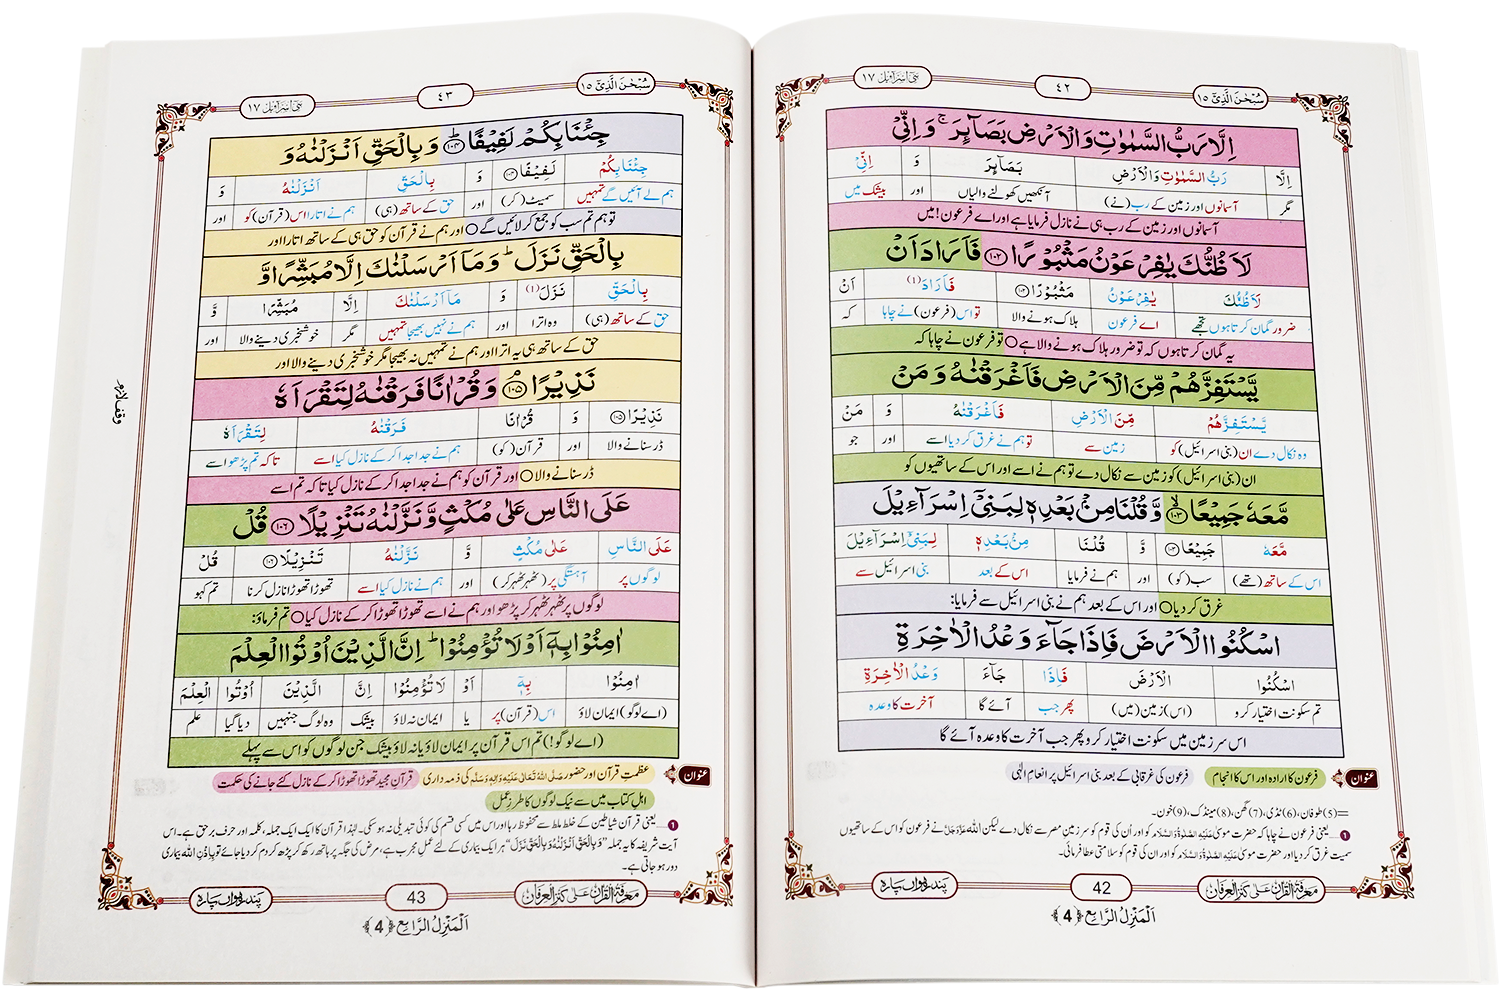 سُبْحٰنَ الَّذِیْۤ ١٥
٤٢
بنی اسرآءیل ١٧
اِلَّا رَبُّ السَّمٰوٰتِ وَ الْاَرْضِ بَصَآىٕرَۚ وَ اِنِّیْ
اِلَّا رَبُّ السَّمٰوٰتِ وَالْاَرْضِ بَصَآىٕرَ وَ اِنِّیْ
مگر آسمانوں اور زمین کے رب (نے) آنکھیں کھولنے والیاں اور بیشک میں
آسمانوں اور زمین کے رب ہی نے نازل فرمایا ہے اور اے فرعون! میں
لَاَظُنُّكَ یٰفِرْعَوْنُ مَثْبُوْرًا ﴿١٠٢﴾ فَاَرَادَ اَنْ
لَاَظُنُّكَ یٰفِرْعَوْنُ مَثْبُوْرًا ﴿١٠٢﴾ فَاَرَادَ (١) اَنْ
ضرور گمان کرتا ہوں تجھے اے فرعون ہلاک ہونے والا تو اس (فرعون) نے چاہا کہ
یہ گمان کرتا ہوں کہ تو ضرور ہلاک ہونے والا ہے ○ تو فرعون نے چاہا کہ
یَّسْتَفِزَّهُمْ مِّنَ الْاَرْضِ فَاَغْرَقْنٰهُ وَ مَنْ
یَّسْتَفِزَّهُمْ مِّنَ الْاَرْضِ فَاَغْرَقْنٰهُ وَ مَنْ
وہ نکال دے ان (بنی اسرائیل) کو زمین سے تو ہم نے غرق کر دیا اسے اور جو
ان (بنی اسرائیل) کو زمین سے نکال دے تو ہم نے اسے اور اس کے ساتھیوں کو
مَّعَهٗ جَمِیْعًا ﴿١٠٣﴾ وَّ قُلْنَا مِنْۢ بَعْدِهٖ لِبَنِیْۤ اِسْرَآءِیْلَ
مَّعَهٗ جَمِیْعًا ﴿١٠٣﴾ وَّ قُلْنَا مِنْۢ بَعْدِهٖ لِبَنِیْۤ اِسْرَآءِیْلَ
اس کے ساتھ (تھے) سب (کو) اور ہم نے فرمایا اس کے بعد بنی اسرائیل سے
غرق کر دیا ○ اور اس کے بعد ہم نے بنی اسرائیل سے فرمایا:
اسْكُنُوا الْاَرْضَ فَاِذَا جَآءَ وَعْدُ الْاٰخِرَةِ
اسْكُنُوا الْاَرْضَ فَاِذَا جَآءَ وَعْدُ الْاٰخِرَةِ
تم سکونت اختیار کرو (اس) زمین (میں) پھر جب آئے گا آخرت کا وعدہ
اس سرزمین میں سکونت اختیار کرو پھر جب آخرت کا وعدہ آئے گا
عنوان فرعون کا ارادہ اور اس کا انجام فرعون کی غرقابی کے بعد بنی اسرائیل پر انعامِ الٰہی
=(5) طوفان، (6) ٹڈی، (7) گھن، (8) مینڈک، (9) خون۔
1 ...... یعنی فرعون نے چاہا کہ حضرت موسیٰ عَلَیْهِ الصَّلٰوةُ وَالسَّلَام کو اور اُن کی قوم کو سرزمینِ مصر سے نکال دے لیکن اللہ عَزَّوَجَلَّ نے فرعون کو اس کے ساتھیوں
سمیت غرق کر دیا اور حضرت موسیٰ عَلَیْهِ الصَّلٰوةُ وَالسَّلَام کو اور ان کی قوم کو سلامتی عطا فرمائی۔
معرفۃ القرآن علیٰ کنز العرفان
42
پندرہواں پارہ
اَلْمَنْزِلُ الرَّابِع ﴿4﴾
سُبْحٰنَ الَّذِیْۤ ١٥
٤٣
بنی اسرآءیل ١٧
جِئْنَا بِكُمْ لَفِیْفًاؕ ﴿١٠٤﴾ وَ بِالْحَقِّ اَنْزَلْنٰهُ وَ
جِئْنَا بِكُمْ لَفِیْفًا ﴿١٠٤﴾ وَ بِالْحَقِّ اَنْزَلْنٰهُ وَ
ہم لے آئیں گے تمہیں سمیٹ (کر) اور حق کے ساتھ (ہی) ہم نے اتارا اس (قرآن) کو اور
تو ہم تم سب کو جمع کر لائیں گے ○ اور ہم نے قرآن کو حق ہی کے ساتھ اتارا اور
بِالْحَقِّ نَزَلَؕ وَ مَاۤ اَرْسَلْنٰكَ اِلَّا مُبَشِّرًا وَّ
بِالْحَقِّ نَزَلَ (١) وَ مَاۤ اَرْسَلْنٰكَ اِلَّا مُبَشِّرًا وَّ
حق کے ساتھ (ہی) وہ اترا اور ہم نے نہیں بھیجا تمہیں مگر خوشخبری دینے والا اور
حق کے ساتھ ہی یہ اترا اور ہم نے تمہیں نہ بھیجا مگر خوشخبری دینے والا اور
وقف لازم
نَذِیْرًاۘ ﴿١٠٥﴾ وَ قُرْاٰنًا فَرَقْنٰهُ لِتَقْرَاَهٗ
نَذِیْرًا ﴿١٠٥﴾ وَ قُرْاٰنًا فَرَقْنٰهُ لِتَقْرَاَهٗ
ڈر سنانے والا اور قرآن (کو) ہم نے جدا جدا کر کے نازل کیا اسے تاکہ تم پڑھو اسے
ڈر سنانے والا ○ اور قرآن کو ہم نے جدا جدا کر کے نازل کیا تاکہ تم اسے
عَلَى النَّاسِ عَلٰى مُكْثٍ وَّ نَزَّلْنٰهُ تَنْزِیْلًا ﴿١٠٦﴾ قُلْ
عَلَى النَّاسِ عَلٰى مُكْثٍ وَّ نَزَّلْنٰهُ تَنْزِیْلًا ﴿١٠٦﴾ قُلْ
لوگوں پر آہستگی پر (ٹھہر ٹھہر کر) اور ہم نے نازل کیا اسے تھوڑا تھوڑا نازل کرنا تم کہو
لوگوں پر ٹھہر ٹھہر کر پڑھو اور ہم نے اسے تھوڑا تھوڑا کر کے نازل کیا ○ تم فرماؤ:
اٰمِنُوْا بِهٖۤ اَوْ لَا تُؤْمِنُوْاؕ اِنَّ الَّذِیْنَ اُوْتُوا الْعِلْمَ
اٰمِنُوْا بِهٖۤ اَوْ لَا تُؤْمِنُوْا اِنَّ الَّذِیْنَ اُوْتُوا الْعِلْمَ
(اے لوگو) ایمان لاؤ اس (قرآن) پر یا ایمان نہ لاؤ بیشک وہ لوگ جنہیں دیا گیا علم
(اے لوگو!) تم اس قرآن پر ایمان لاؤ یا نہ لاؤ بیشک جن لوگوں کو اس سے پہلے
عنوان عظمتِ قرآن اور حضور صَلَّی اللهُ تَعَالٰی عَلَیْهِ وَاٰلِهٖ وَسَلَّم کی ذمہ داری قرآن مجید تھوڑا تھوڑا کر کے نازل کئے جانے کی حکمت
اہلِ کتاب میں سے نیک لوگوں کا طرزِ عمل
1 ...... یعنی قرآن شیاطین کے خلط ملط سے محفوظ رہا اور اس میں کسی قسم کی کوئی تبدیلی نہ ہو سکی۔ لہٰذا قرآن کا ایک ایک جملہ، کلمہ اور حرف برحق ہے۔ اس
آیت شریفہ کا یہ جملہ ”وَبِالْحَقِّ اَنْزَلْنٰهُ وَبِالْحَقِّ نَزَلَ“ ہر ایک بیماری کے لئے عملِ مجرب ہے، مرض کی جگہ پر ہاتھ رکھ کر پڑھ کر دم کر دیا جائے تو بِاِذْنِ اللہ بیماری
دور ہو جاتی ہے۔
معرفۃ القرآن علیٰ کنز العرفان
43
پندرہواں پارہ
اَلْمَنْزِلُ الرَّابِع ﴿4﴾